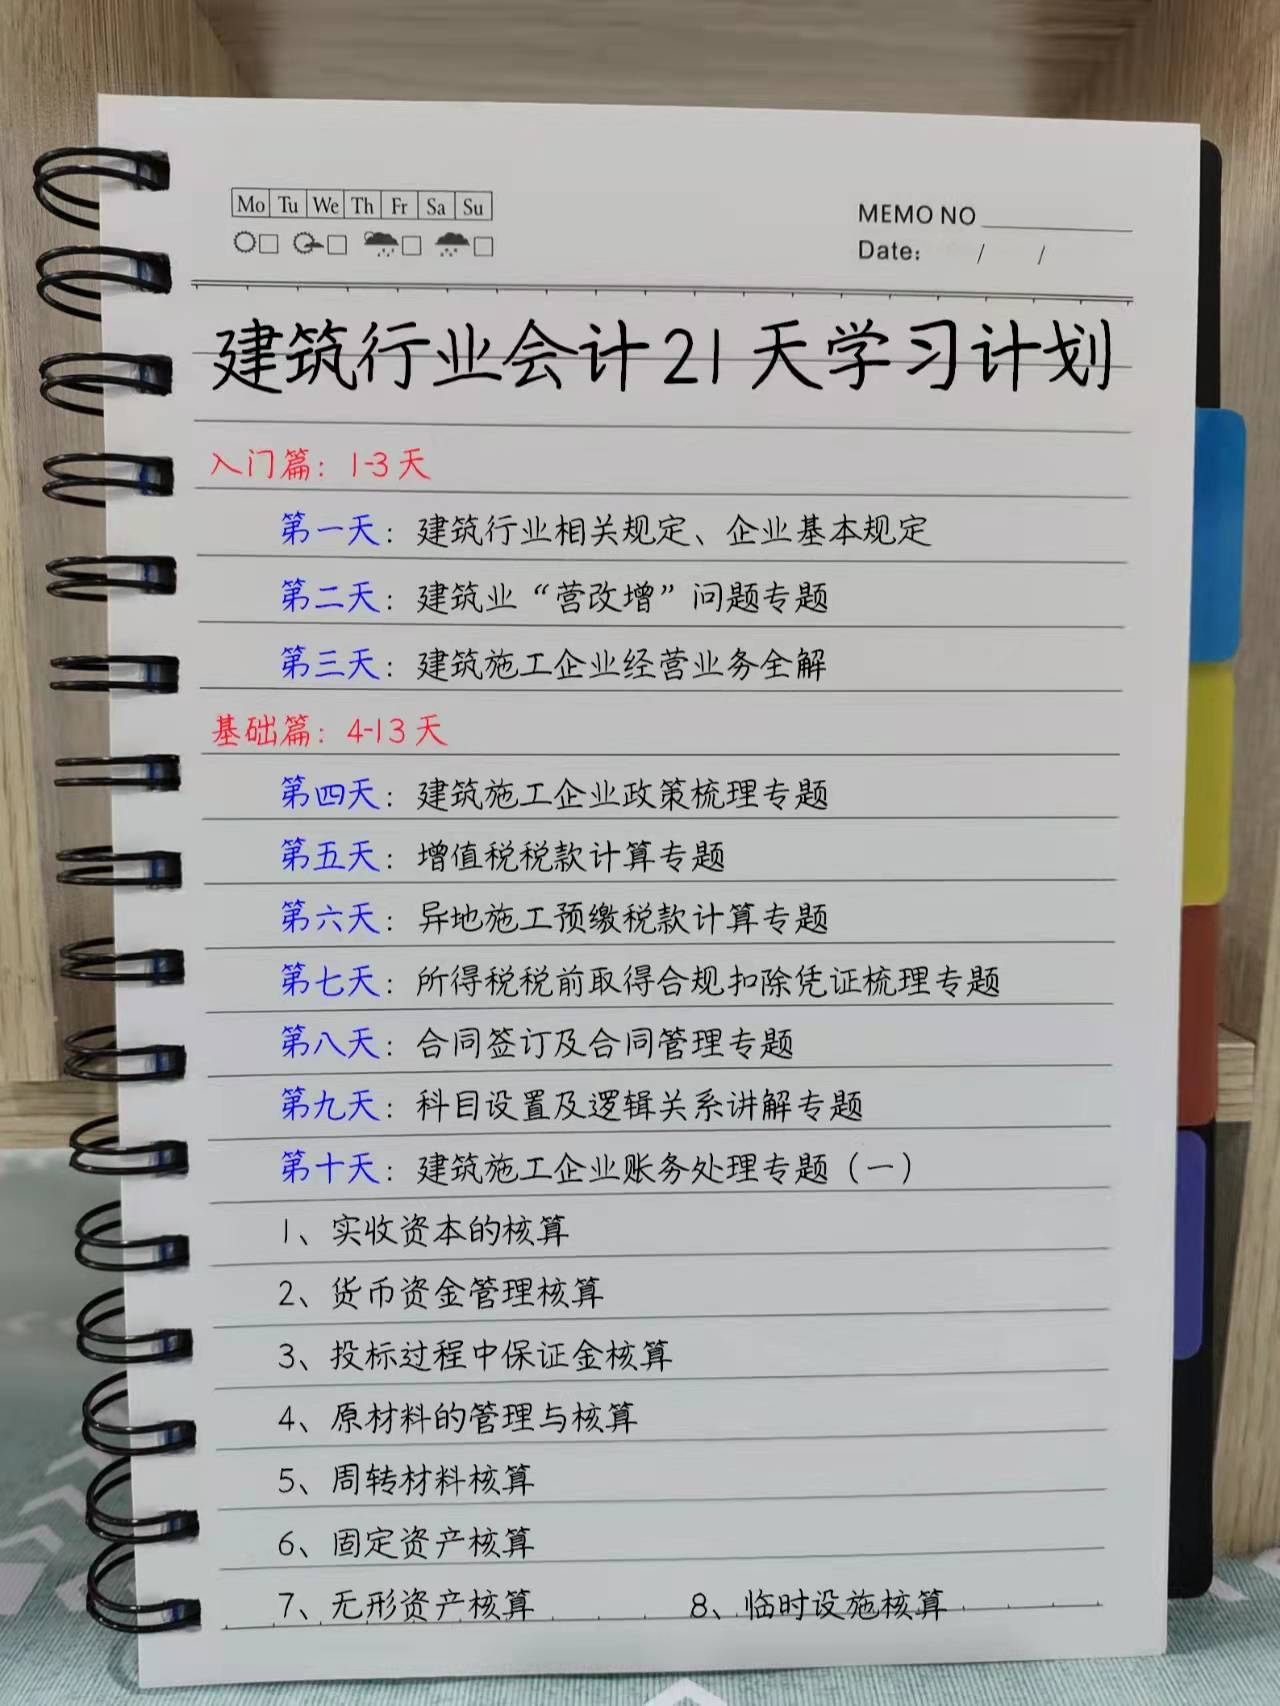 Mo Tu We Th Fr Sa Su
MEMO NO
Date: / /
建筑行业会计21天学习计划
入门篇：1-3天
第一天：建筑行业相关规定、企业基本规定
第二天：建筑业“营改增”问题专题
第三天：建筑施工企业经营业务全解
基础篇：4-13天
第四天：建筑施工企业政策梳理专题
第五天：增值税税款计算专题
第六天：异地施工预缴税款计算专题
第七天：所得税税前取得合规扣除凭证梳理专题
第八天：合同签订及合同管理专题
第九天：科目设置及逻辑关系讲解专题
第十天：建筑施工企业账务处理专题（一）
1、实收资本的核算
2、货币资金管理核算
3、投标过程中保证金核算
4、原材料的管理与核算
5、周转材料核算
6、固定资产核算
7、无形资产核算 8、临时设施核算